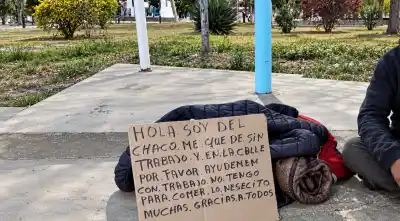 HOLA SOY DEL
CHACO. ME. QUE DE SIN
TRABAJO. Y. EN. LA. CALLE
POR. FAVOR. AYUDEMEN
CON. TRABAJO. NO. TENGO
PARA. COMER. LO. NESECITO
MUCHAS. GRACIAS. A. TODOS